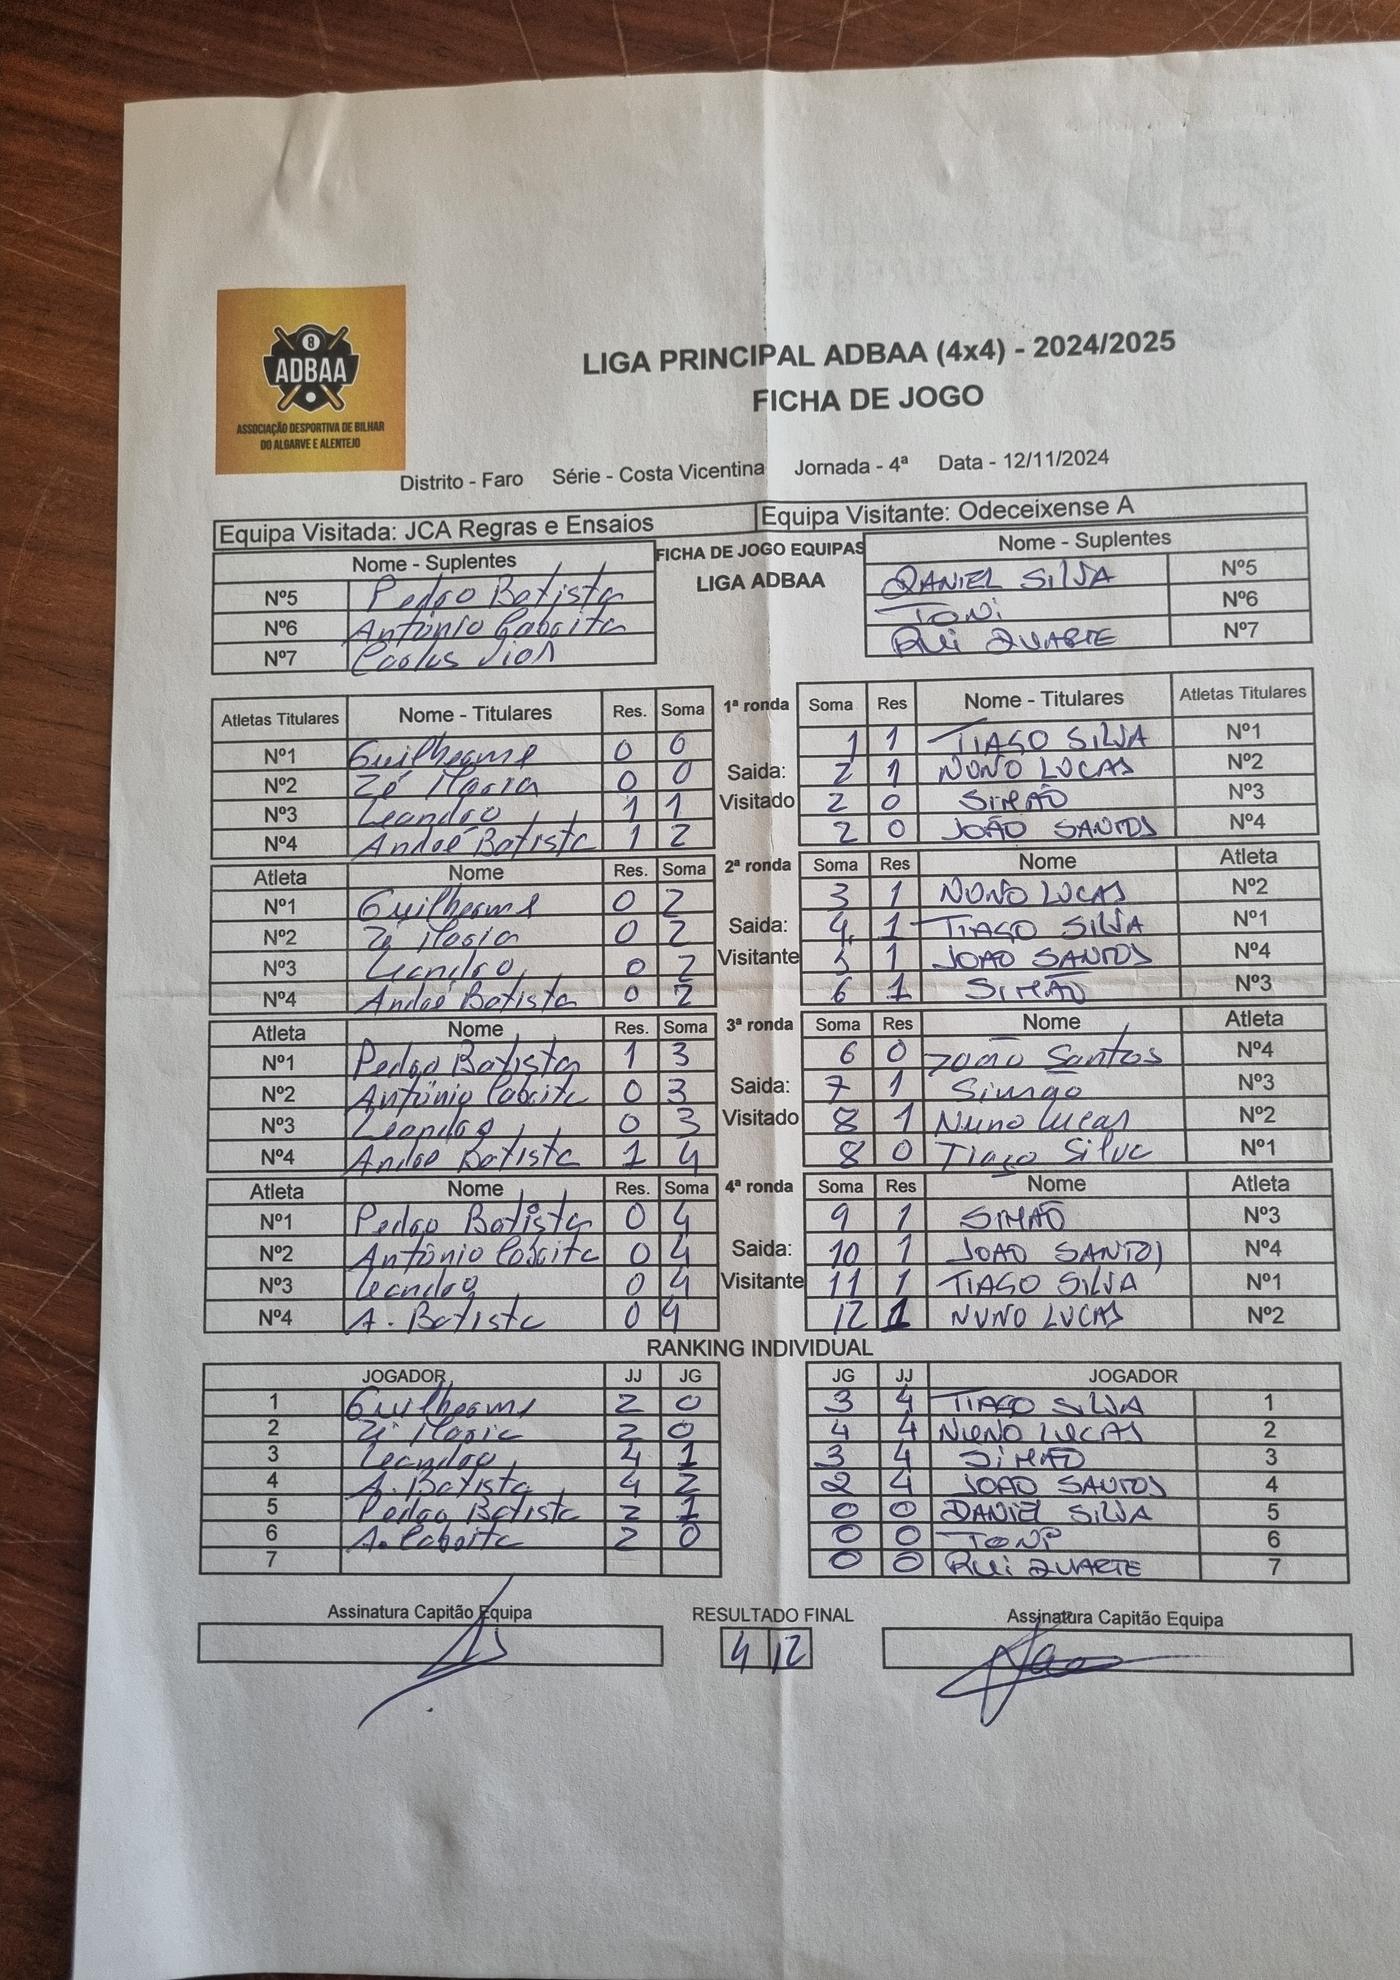 8
ADBAA
ASSOCIAÇÃO DESPORTIVA DE BILHAR
DO ALGARVE E ALENTEJO
LIGA PRINCIPAL ADBAA (4x4) - 2024/2025
FICHA DE JOGO
Distrito - Faro Série - Costa Vicentina Jornada - 4ª Data - 12/11/2024
Equipa Visitada: JCA Regras e Ensaios Equipa Visitante: Odeceixense A
Nome - Suplentes FICHA DE JOGO EQUIPAS Nome - Suplentes
LIGA ADBAA
Nº5 Pedro Batista DANIEL SILVA Nº5
Nº6 António Cabrita TONI Nº6
Nº7 Carlos RUI DUARTE Nº7
Atletas Titulares Nome - Titulares Res. Soma 1ª ronda Soma Res Nome - Titulares Atletas Titulares
Nº1 Guilherme 0 0 1 1 TIAGO SILVA Nº1
Nº2 Zé Maria 0 0 Saida: 2 1 NUNO LUCAS Nº2
Nº3 Leandro 1 1 Visitado 2 0 SIMÃO Nº3
Nº4 André Batista 1 2 2 0 JOÃO SANTOS Nº4
Atleta Nome Res. Soma 2ª ronda Soma Res Nome Atleta
Nº1 Guilherme 0 2 3 1 NUNO LUCAS Nº2
Nº2 Zé Maria 0 2 Saida: 4 1 TIAGO SILVA Nº1
Nº3 Leandro 0 2 Visitante 5 1 JOÃO SANTOS Nº4
Nº4 André Batista 0 2 6 1 SIMÃO Nº3
Atleta Nome Res. Soma 3ª ronda Soma Res Nome Atleta
Nº1 Pedro Batista 1 3 6 0 João Santos Nº4
Nº2 António Cabrita 0 3 Saida: 7 1 Simão Nº3
Nº3 Leandro 0 3 Visitado 8 1 Nuno Lucas Nº2
Nº4 André Batista 1 4 8 0 Tiago Silva Nº1
Atleta Nome Res. Soma 4ª ronda Soma Res Nome Atleta
Nº1 Pedro Batista 0 4 9 1 SIMÃO Nº3
Nº2 António Cabrita 0 4 Saida: 10 1 JOÃO SANTOS Nº4
Nº3 Leandro 0 4 Visitante 11 1 TIAGO SILVA Nº1
Nº4 A. Batista 0 4 12 1 NUNO LUCAS Nº2
RANKING INDIVIDUAL
JOGADOR JJ JG JG JJ JOGADOR
1 Guilherme 2 0 3 4 TIAGO SILVA 1
2 Zé Maria 2 0 4 4 NUNO LUCAS 2
3 Leandro 4 1 3 4 SIMÃO 3
4 A. Batista 4 2 2 4 JOÃO SANTOS 4
5 Pedro Batista 2 1 0 0 DANIEL SILVA 5
6 A. Cabrita 2 0 0 0 TONI 6
7 0 0 RUI DUARTE 7
Assinatura Capitão Equipa RESULTADO FINAL Assinatura Capitão Equipa
4 12